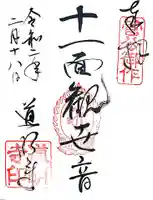 奉拝
十一面観世音
道明寺
令和二年
二月十八日